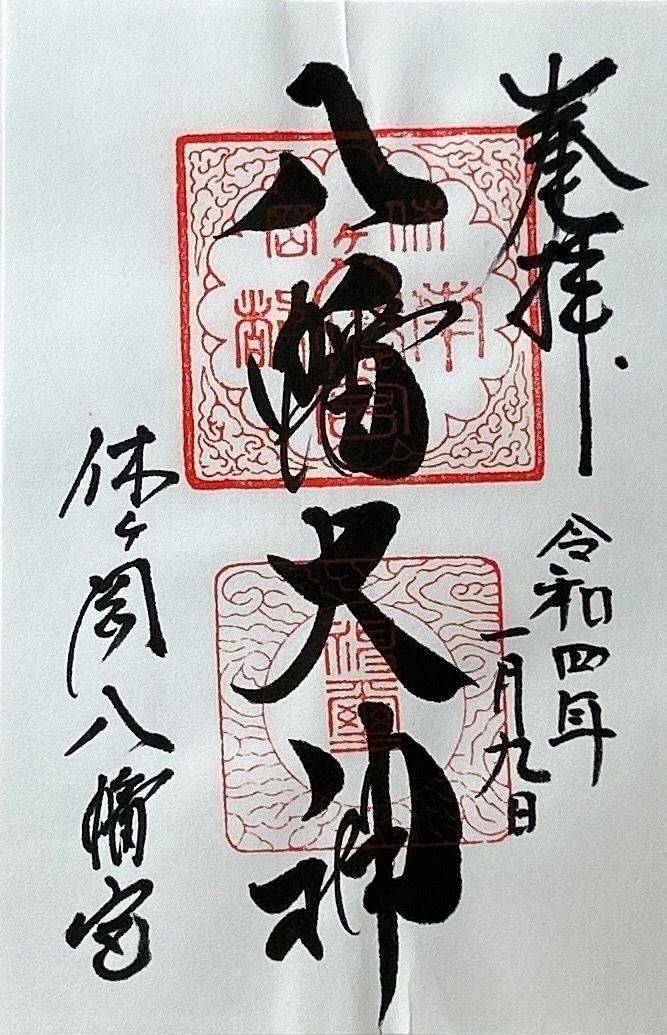 奉拝
令和四年
一月九日
八幡大神
休ヶ岡八幡宮